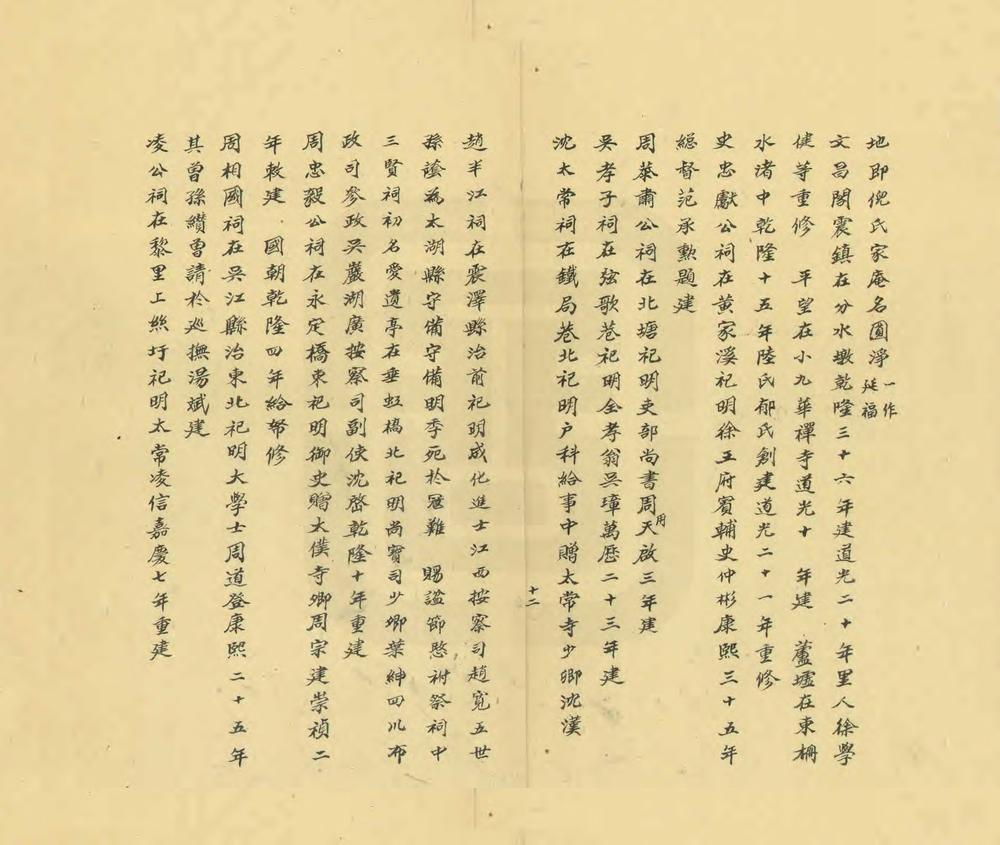 地即倪氏家庵名圓淨一作延福
文昌閣震鎮在分水墩乾隆三十六年建道光二十年里人徐學
健等重修　平望在小九華禪寺道光十　年建　蘆墟在東柵
水渚中乾隆十五年陸氏郁氏創建道光二十一年重修
史忠獻公祠在黃家溪祀明徐王府賓輔史仲彬康熙三十五年
總督范承勲題建
周恭肅公祠在北塘祀明吏部尚書周用天啟三年建
吳孝子祠在弦歌巷祀明全孝翁吳璋萬歷二十三年建
沈太常祠在鐵局巷北祀明户科給事中贈太常寺少卿沈漢
十二
趙半江祠在震澤縣治前祀明成化進士江西按察司趙寬五世
孫蔭為太湖縣守備守備明季死於冠難　賜諡節愍祔祭祠中
三賢祠初名愛遺亭在垂虹橋北祀明尚寳司少卿葉紳四川布
政司參政吳巖湖廣按察司副使沈啓乾隆十年重建
周忠毅公祠在永定橋東祀明御史贈太僕寺卿周宗建崇禎二
年敕建　國朝乾隆四年給帑修
周相國祠在吳江縣治東北祀明大學士周道登康熙二十五年
其曾孫纘曾請於巡撫湯斌建
凌公祠在黎里上絲圩祀明太常凌信嘉慶七年重建